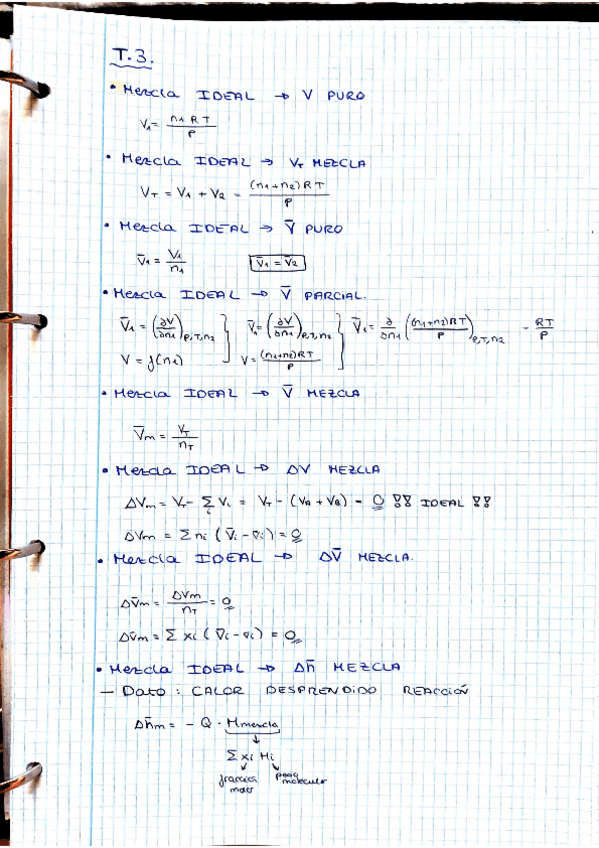 T.3.
• Mezcla IDEAL → V PURO
V₁ = n₁ R T / P
• Mezcla IDEAL → V_T MEZCLA
V_T = V₁ + V₂ = (n₁+n₂) R T / P
• Mezcla IDEAL → V̄ PURO
v̄₁ = V₁ / n₁    v̄₁ = v̄₂
• Mezcla IDEAL → V̄ PARCIAL.
V̄₁ = (∂V/∂n₁)P,T,n₂ } V̄₁ = (∂V/∂n₁)P,T,n₂ } V̄₁ = ∂/∂n₁ ((n₁+n₂)RT / P)P,T,n₂ = RT / P
V = f(n₁)    V = (n₁+n₂)RT / P
• Mezcla IDEAL → V̄ MEZCLA
V̄m = V_T / n_T
• Mezcla IDEAL → ΔV MEZCLA
ΔVm = V_T - Σ Vi = V_T - (VA + VB) = 0 !! IDEAL !!
ΔVm = Σ ni (V̄i - v̄i) = 0
• Mezcla IDEAL → ΔV̄ MEZCLA.
Δv̄m = ΔVm / n_T = 0
Δv̄m = Σ xi (V̄i - v̄i) = 0
• Mezcla IDEAL → Δh̄ MEZCLA
- Dato : CALOR DESPRENDIDO REACCIÓN
Δh̄m = - Q · Mmezcla
↓
Σ xi Mi
fracción peso
molar molecular